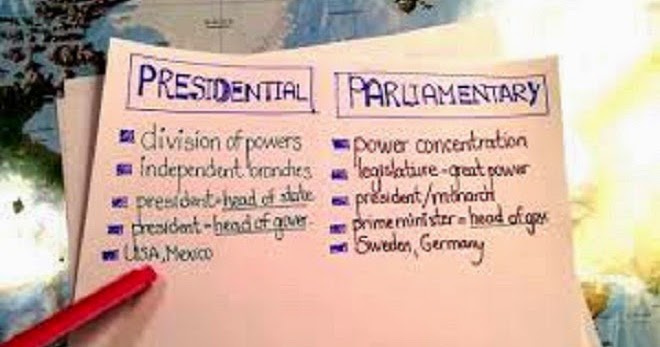 PRESIDENTIAL
division of powers
independent branches
president=head of state
president=head of gover.
USA, Mexico
PARLIAMENTARY
power concentration
legislature=great power
president/monarch
prime minister=head of gov
Sweden, Germany